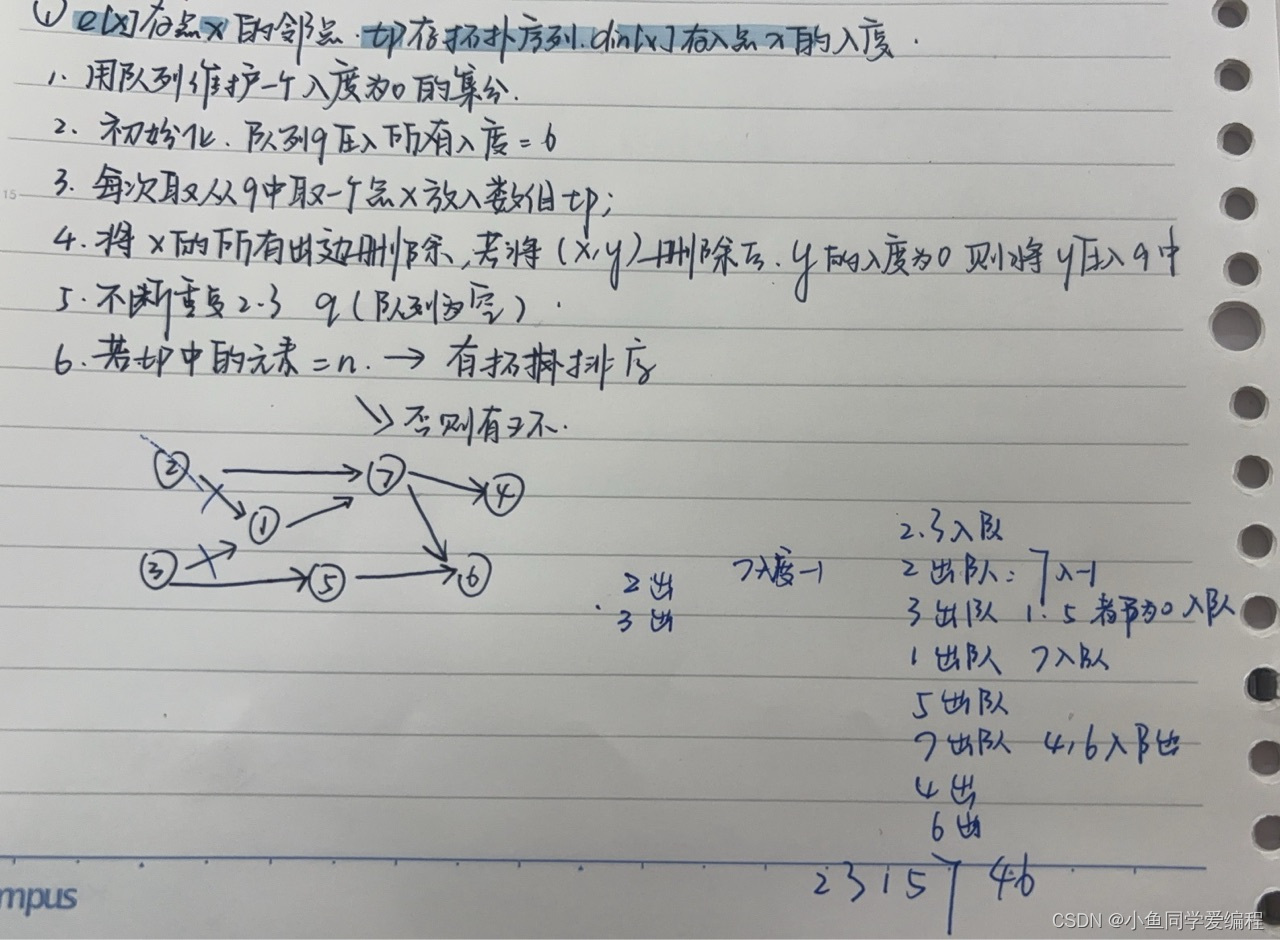 ① e[x]存点x的邻点.tp存拓扑序列.din[x]存入点x的入度.
1. 用队列维护一个入度为0的集合.
2. 初始化.队列q压入所有入度=0
3. 每次取从q中取一个点x放入数组tp;
4. 将x的所有出边删除,若将(x,y)删除后.y的入度为0则将y压入q中
5. 不断重复2.3 q(队列为空).
6. 若tp中的元素=n.→有拓扑排序
否则有环.
② ⑦ ④
① ③ ⑤ ⑥
2出
3出
7入度-1
2.3入队
2出队: 7入-1
3出队 1.5都为0入队
1出队 7入队
5出队
7出队 4,6入队出
4出
6出
2 3 1 5 7 4 6
mpus
15
CSDN @小鱼同学爱编程